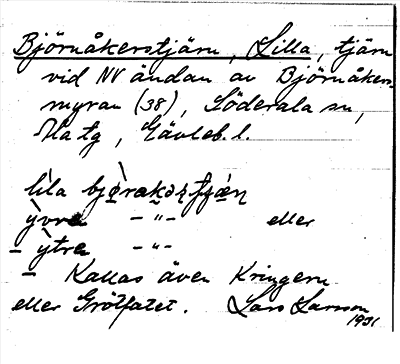 Björnåkerstjärn, Lilla, tjärn
vid NV ändan av Björnåkers-
myran (38), Söderala sn,
Ala tg, Gävleb. l.
lìla bjø̀rakəʂʈjæ̣ɳ
ỳvre -"- eller
- ỳtre -"-
- Kallas även Kringern
eller Grötfatet. Lars Larsson
1931